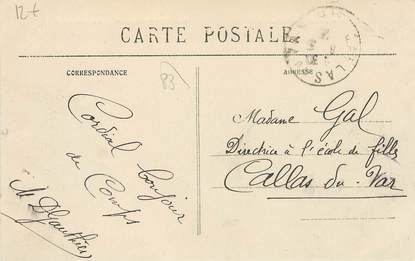 12€
CARTE POSTALE
CORRESPONDANCE
ADRESSE
83
CALLAS
VAR
Cordial bonjour
de Comps
M Gauthier
Madame Gal
Directrice à l'école de filles
Callas du Var